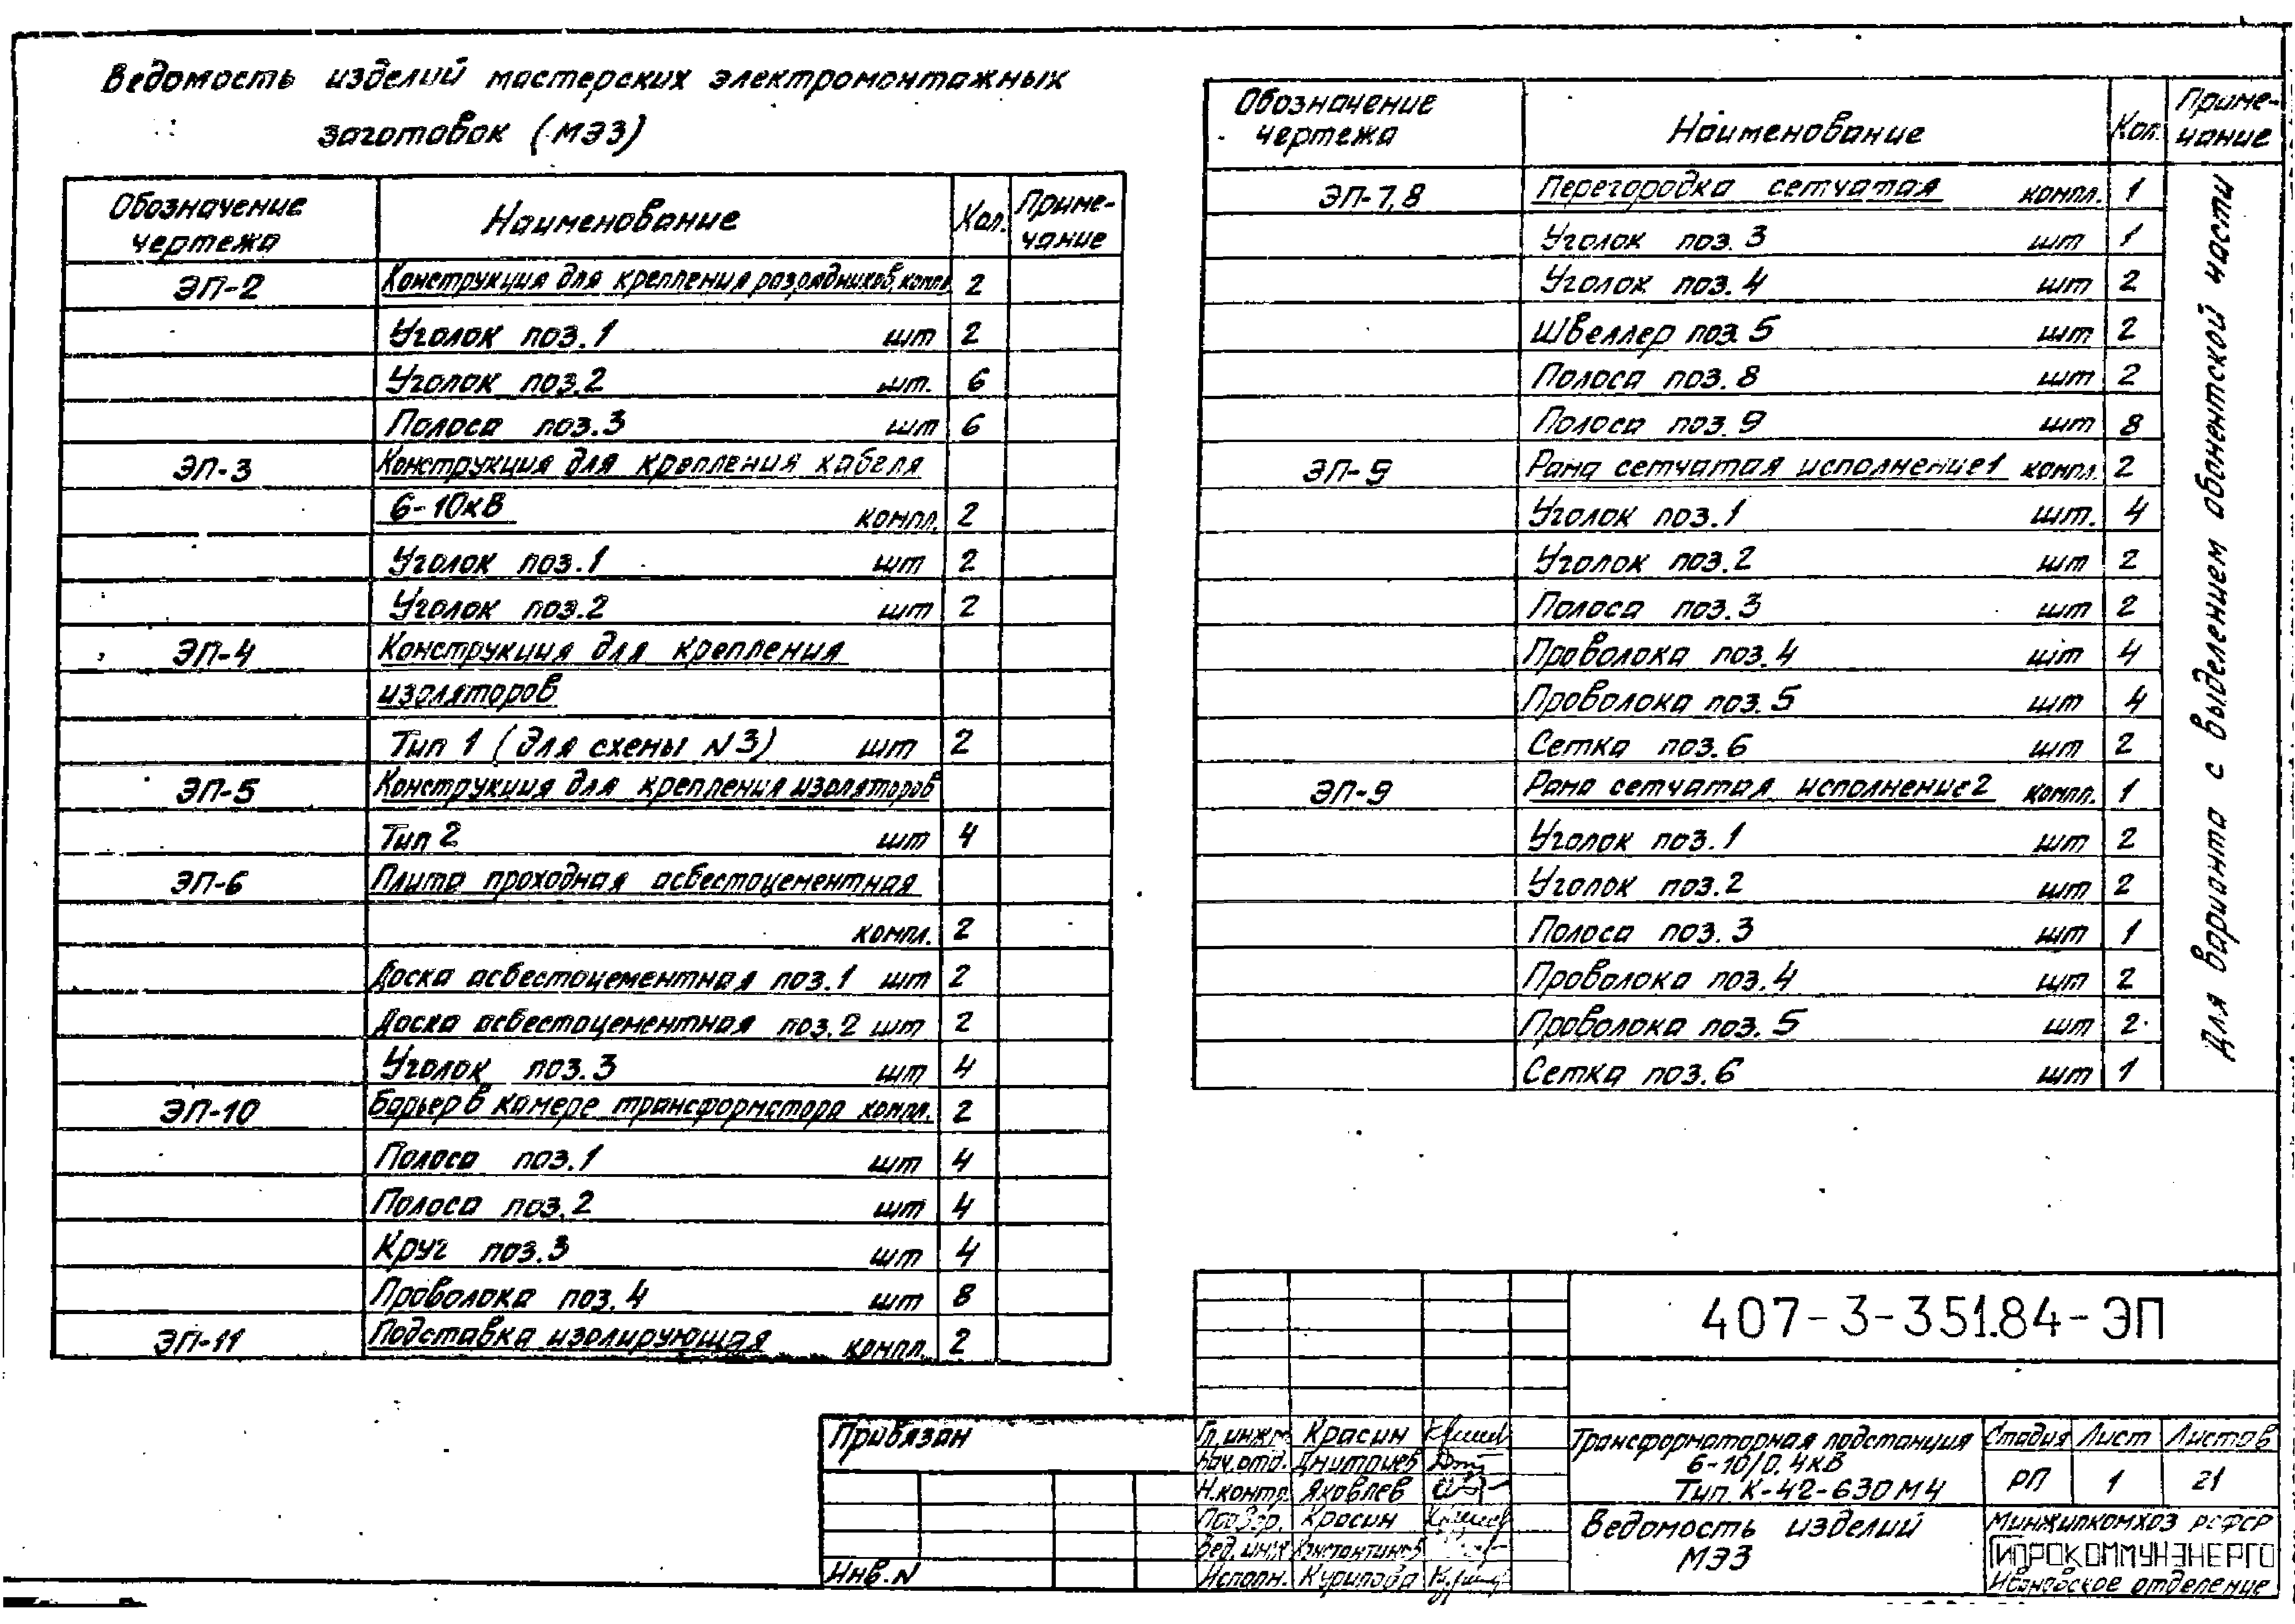 Ведомость изделий мастерских электромонтажных
заготовок (МЭЗ)
Обозначение чертежа Наименование Кол. Приме-чание
ЭП-2 Конструкция для крепления разрядников, компл 2
Уголок поз.1 шт 2
Уголок поз.2 шт. 6
Полоса поз.3 шт 6
ЭП-3 Конструкция для крепления кабеля
6-10кВ компл. 2
Уголок поз.1 шт 2
Уголок поз.2 шт 2
ЭП-4 Конструкция для крепления
изоляторов
Тип 1 (для схемы N3) шт 2
ЭП-5 Конструкция для крепления изоляторов
Тип 2 шт 4
ЭП-6 Плита проходная асбестоцементная
компл. 2
Доска асбестоцементная поз.1 шт 2
Доска асбестоцементная поз.2 шт 2
Уголок поз.3 шт 4
ЭП-10 Барьер в камере трансформатора компл. 2
Полоса поз.1 шт 4
Полоса поз.2 шт 4
Круг поз.3 шт 4
Проволока поз.4 шт 8
ЭП-11 Подставка изолирующая компл. 2
Обозначение чертежа Наименование Кол. Приме-чание
ЭП-7,8 Перегородка сетчатая компл. 1
Уголок поз.3 шт 1
Уголок поз.4 шт 2
Швеллер поз.5 шт 2
Полоса поз.8 шт 2
Полоса поз.9 шт 8
ЭП-9 Рама сетчатая исполнение1 компл. 2
Уголок поз.1 шт. 4
Уголок поз.2 шт 2
Полоса поз.3 шт 2
Проволока поз.4 шт 4
Проволока поз.5 шт 4
Сетка поз.6 шт 2
ЭП-9 Рама сетчатая исполнение2 компл. 1
Уголок поз.1 шт 2
Уголок поз.2 шт 2
Полоса поз.3 шт 1
Проволока поз.4 шт 2
Проволока поз.5 шт 2
Сетка поз.6 шт 1
Для варианта с выделением абонентской части
407-3-351.84-ЭП
Привязан
Инв.N
Гл.инж. Красин
Нач.отд. Дмитриев
Н.контр. Яковлев
Провер. Красин
Вед.инж Константинов
Исполн. Курилова
Трансформаторная подстанция
6-10/0.4кВ
Тип К-42-630М4
Стадия Лист Листов
РП 1 21
Ведомость изделий
МЭЗ
Минжилкомхоз РСФСР
ГИПРОКОММУНЭНЕРГО
Ивановское отделение